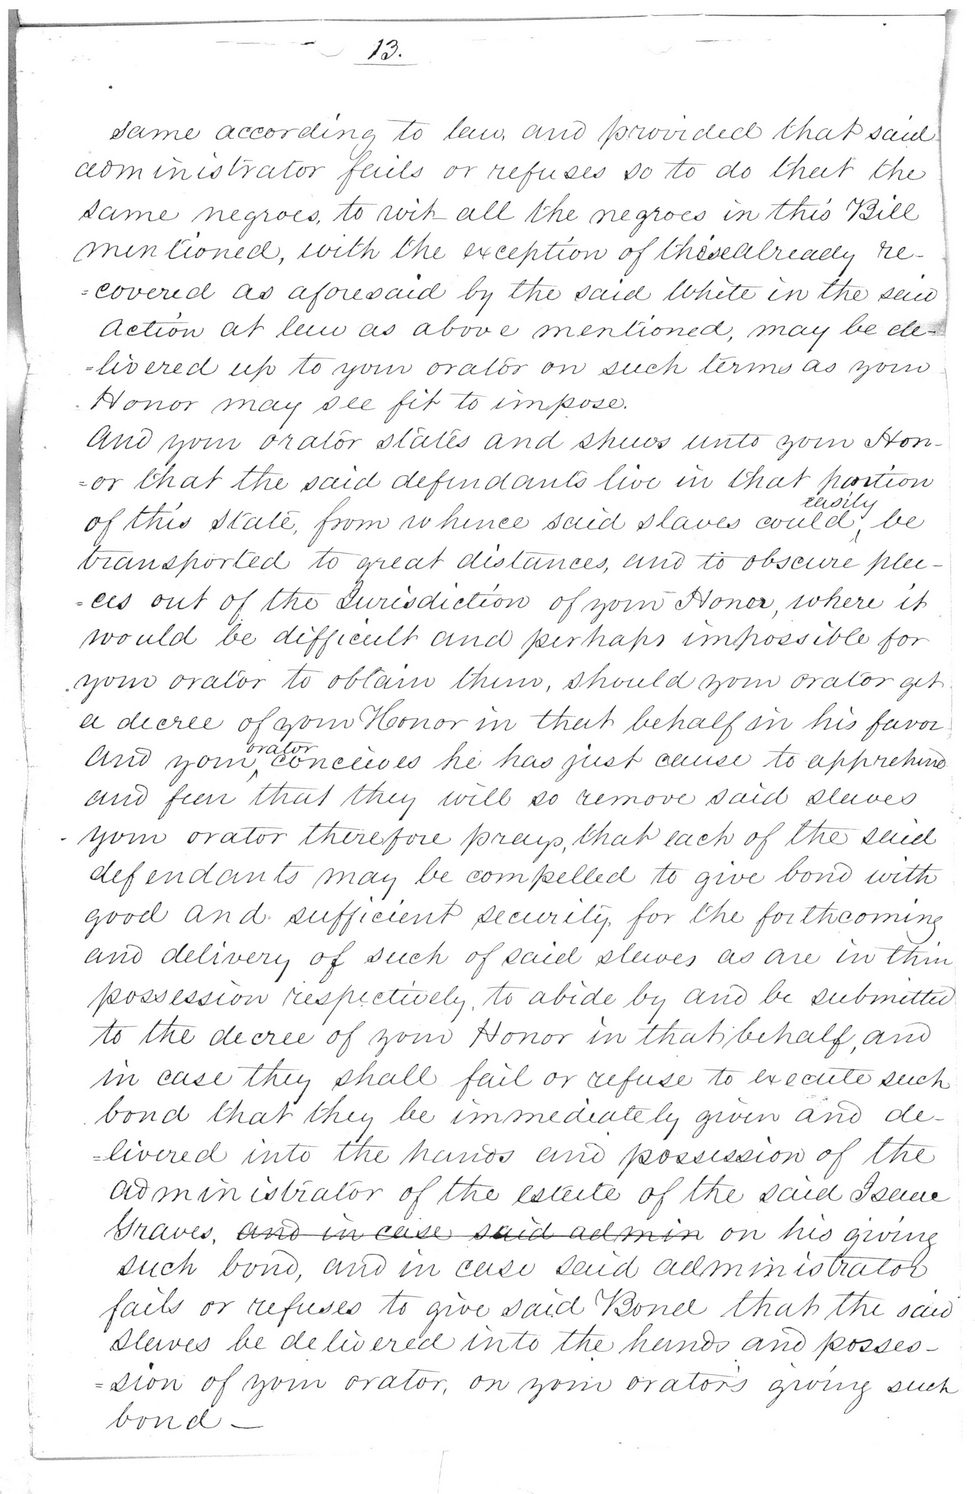 13.
same according to law, and provided that said
administrator fails or refuses so to do that the
same negroes, to wit all the negroes in this Bill
mentioned, with the exception of these already re-
=covered as aforesaid by the said White in the said
action at law as above mentioned, may be de-
=livered up to your orator on such terms as your
Honor may see fit to impose.
And your orator states and shews unto your Hon-
=or that the said defendants live in that portion
of this State, from whence said slaves could easily be
transported to great distances, and to obscure pla-
=ces out of the Jurisdiction of your Honor, where it
would be difficult and perhaps impossible for
your orator to obtain them, should your orator get
a decree of your Honor in that behalf in his favor
And your orator conceives he has just cause to apprehend
and fear that they will so remove said slaves
your orator therefore prays, that each of the said
defendants may be compelled to give bond with
good and sufficient security, for the forthcoming
and delivery of such of said slaves as are in their
possession respectively, to abide by and be submitted
to the decree of your Honor in that behalf, and
in case they shall fail or refuse to execute such
bond that they be immediately given and de-
=livered into the hands and possession of the
administrator of the estate of the said Isaac
Graves, and in case said admin on his giving
such bond, and in case said administrator
fails or refuses to give said Bond that the said
slaves be delivered into the hands and posses-
=sion of your orator, on your orators giving such
bond —